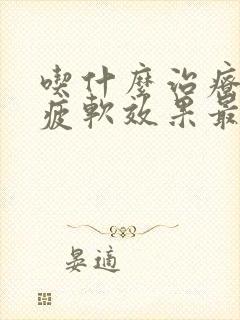 喫什麼治療
疲軟效果最
晏適